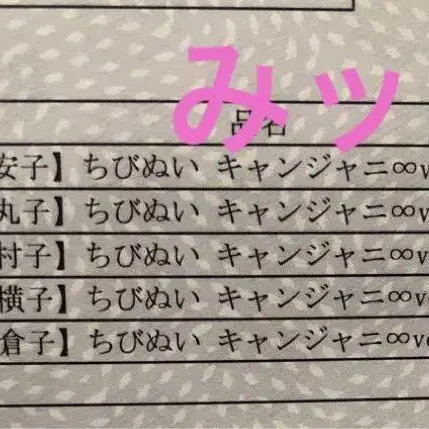 みッ
品名
安子】ちびぬい キャンジャニ∞v
丸子】ちびぬい キャンジャニ∞v
村子】ちびぬい キャンジャニ∞v
横子】ちびぬい キャンジャニ∞ve
倉子】ちびぬい キャンジャニ∞ve